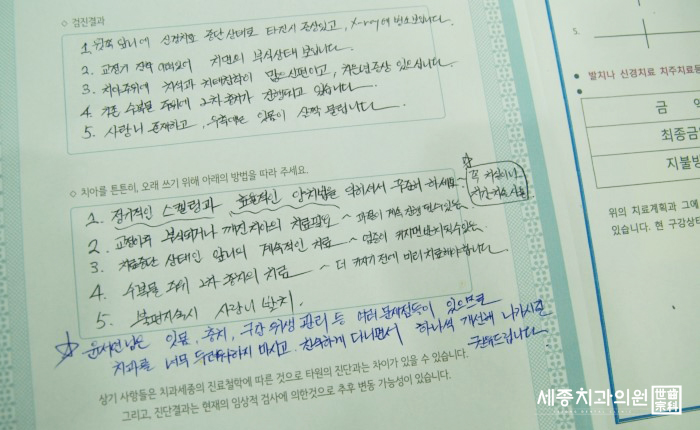 ◇ 검진결과
1. 왼쪽 앞니에 신경치료 중단상태로 타진시 증상있고, X-ray에 병소보입니다.
2. 교정기 장착 치면의 부식상태 보입니다.
3. 치아주위에 치석과 치태침착이 많으신편이고, 증상 있으십니다.
4. 기존 수복물 주위에 2차충치가 진행되고 있습니다.
5. 사랑니 존재하고, 우측에는 잇몸이 살짝 덮입니다
◇ 치아를 튼튼히, 오래 쓰기 위해 아래의 방법을 따라 주세요.
1. 정기적인 스켈링과 효율적인 양치법을 익히셔서 꾸준히 하세요
꼭 치실이나 치간칫솔 사용
2. 교정이후 부식되거나 깨진치아의 치료필요 ~ 계속 진행
3. 치료중단 상태인 앞니의 계속적인 치료 ~ 염증이 커지면
4. 수복물 주위 2차 충치의 치료 ~ 더 커지기 전에 미리 치료해야합니다.
5. 불편지속시 사랑니 발치.
☆ 잇몸, 충치, 구강위생 관리 등 여러 문제점들이 있으므로
치과를 너무 두려워하지 마시고 친숙하게 다니면서 하나씩 개선해 나가시길
권해드립니다
상기 사항들은 치과세종의 진료철학에 따른 것으로 타원의 진단과는 차이가 있을 수 있습니다.
그리고, 진단결과는 현재의 임상적 검사에 의한것으로 추후 변동 가능성이 있습니다.
5.
● 발치나 신경치료 치주치료등
금 액
최종금
지불방
위의 치료계획과 그에
있습니다. 현 구강상
세종치과의원
世宗齒科